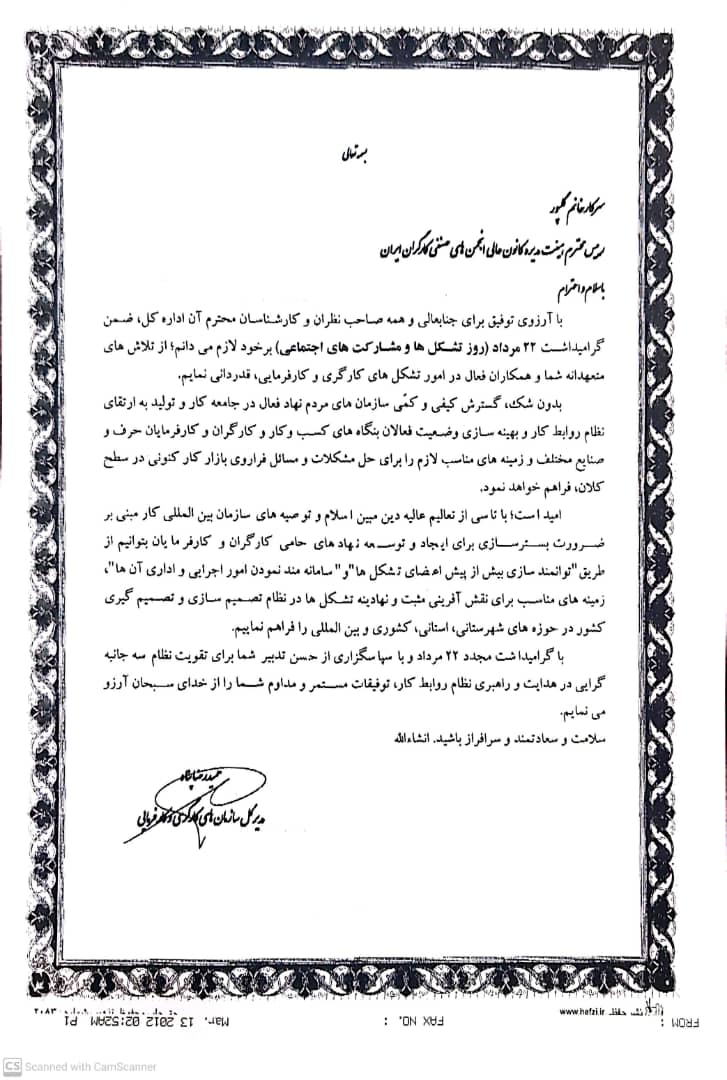 بسمه تعالی
سرکار خانم گلپور
رییس محترم هیئت مدیره کانون عالی انجمن های صنفی کارگران ایران
باسلام و احترام
با آرزوی توفیق برای جنابعالی و همه صاحب نظران و کارشناسان محترم آن اداره کل، ضمن
گرامیداشت ۲۲ مرداد (روز تشکل ها و مشارکت های اجتماعی) برخود لازم می دانم؛ از تلاش های
متعهدانه شما و همکاران فعال در امور تشکل های کارگری و کارفرمایی، قدردانی نمایم.
بدون شک، گسترش کیفی و کمّی سازمان های مردم نهاد فعال در جامعه کار و تولید به ارتقای
نظام روابط کار و بهینه سازی وضعیت فعالان بنگاه های کسب وکار و کارگران و کارفرمایان حرف و
صنایع مختلف و زمینه های مناسب لازم را برای حل مشکلات و مسائل فراروی بازار کار کنونی در سطح
کلان، فراهم خواهد نمود.
امید است؛ با تاسی از تعالیم عالیه دین مبین اسلام و توصیه های سازمان بین المللی کار مبنی بر
ضرورت بسترسازی برای ایجاد و توسعه نهادهای حامی کارگران و کارفر مایان بتوانیم از
طریق"توانمند سازی بیش از پیش اعضای تشکل ها"و" سامانه مند نمودن امور اجرایی و اداری آن ها"،
زمینه های مناسب برای نقش آفرینی مثبت و نهادینه تشکل ها در نظام تصمیم سازی و تصمیم گیری
کشور در حوزه های شهرستانی، استانی، کشوری و بین المللی را فراهم نماییم.
با گرامیداشت مجدد ۲۲ مرداد و با سپاسگزاری از حسن تدبیر شما برای تقویت نظام سه جانبه
گرایی در هدایت و راهبری نظام روابط کار، توفیقات مستمر و مداوم شما را از خدای سبحان آرزو
می نمایم.
سلامت و سعادتمند و سرافراز باشید. انشاءالله
مدیرکل سازمان های کارگری و کارفرمایی
www.hafzi.ir نشر حفظی
FROM : FAX NO. : Mar. 13 2012 02:52AM P1
CS Scanned with CamScanner